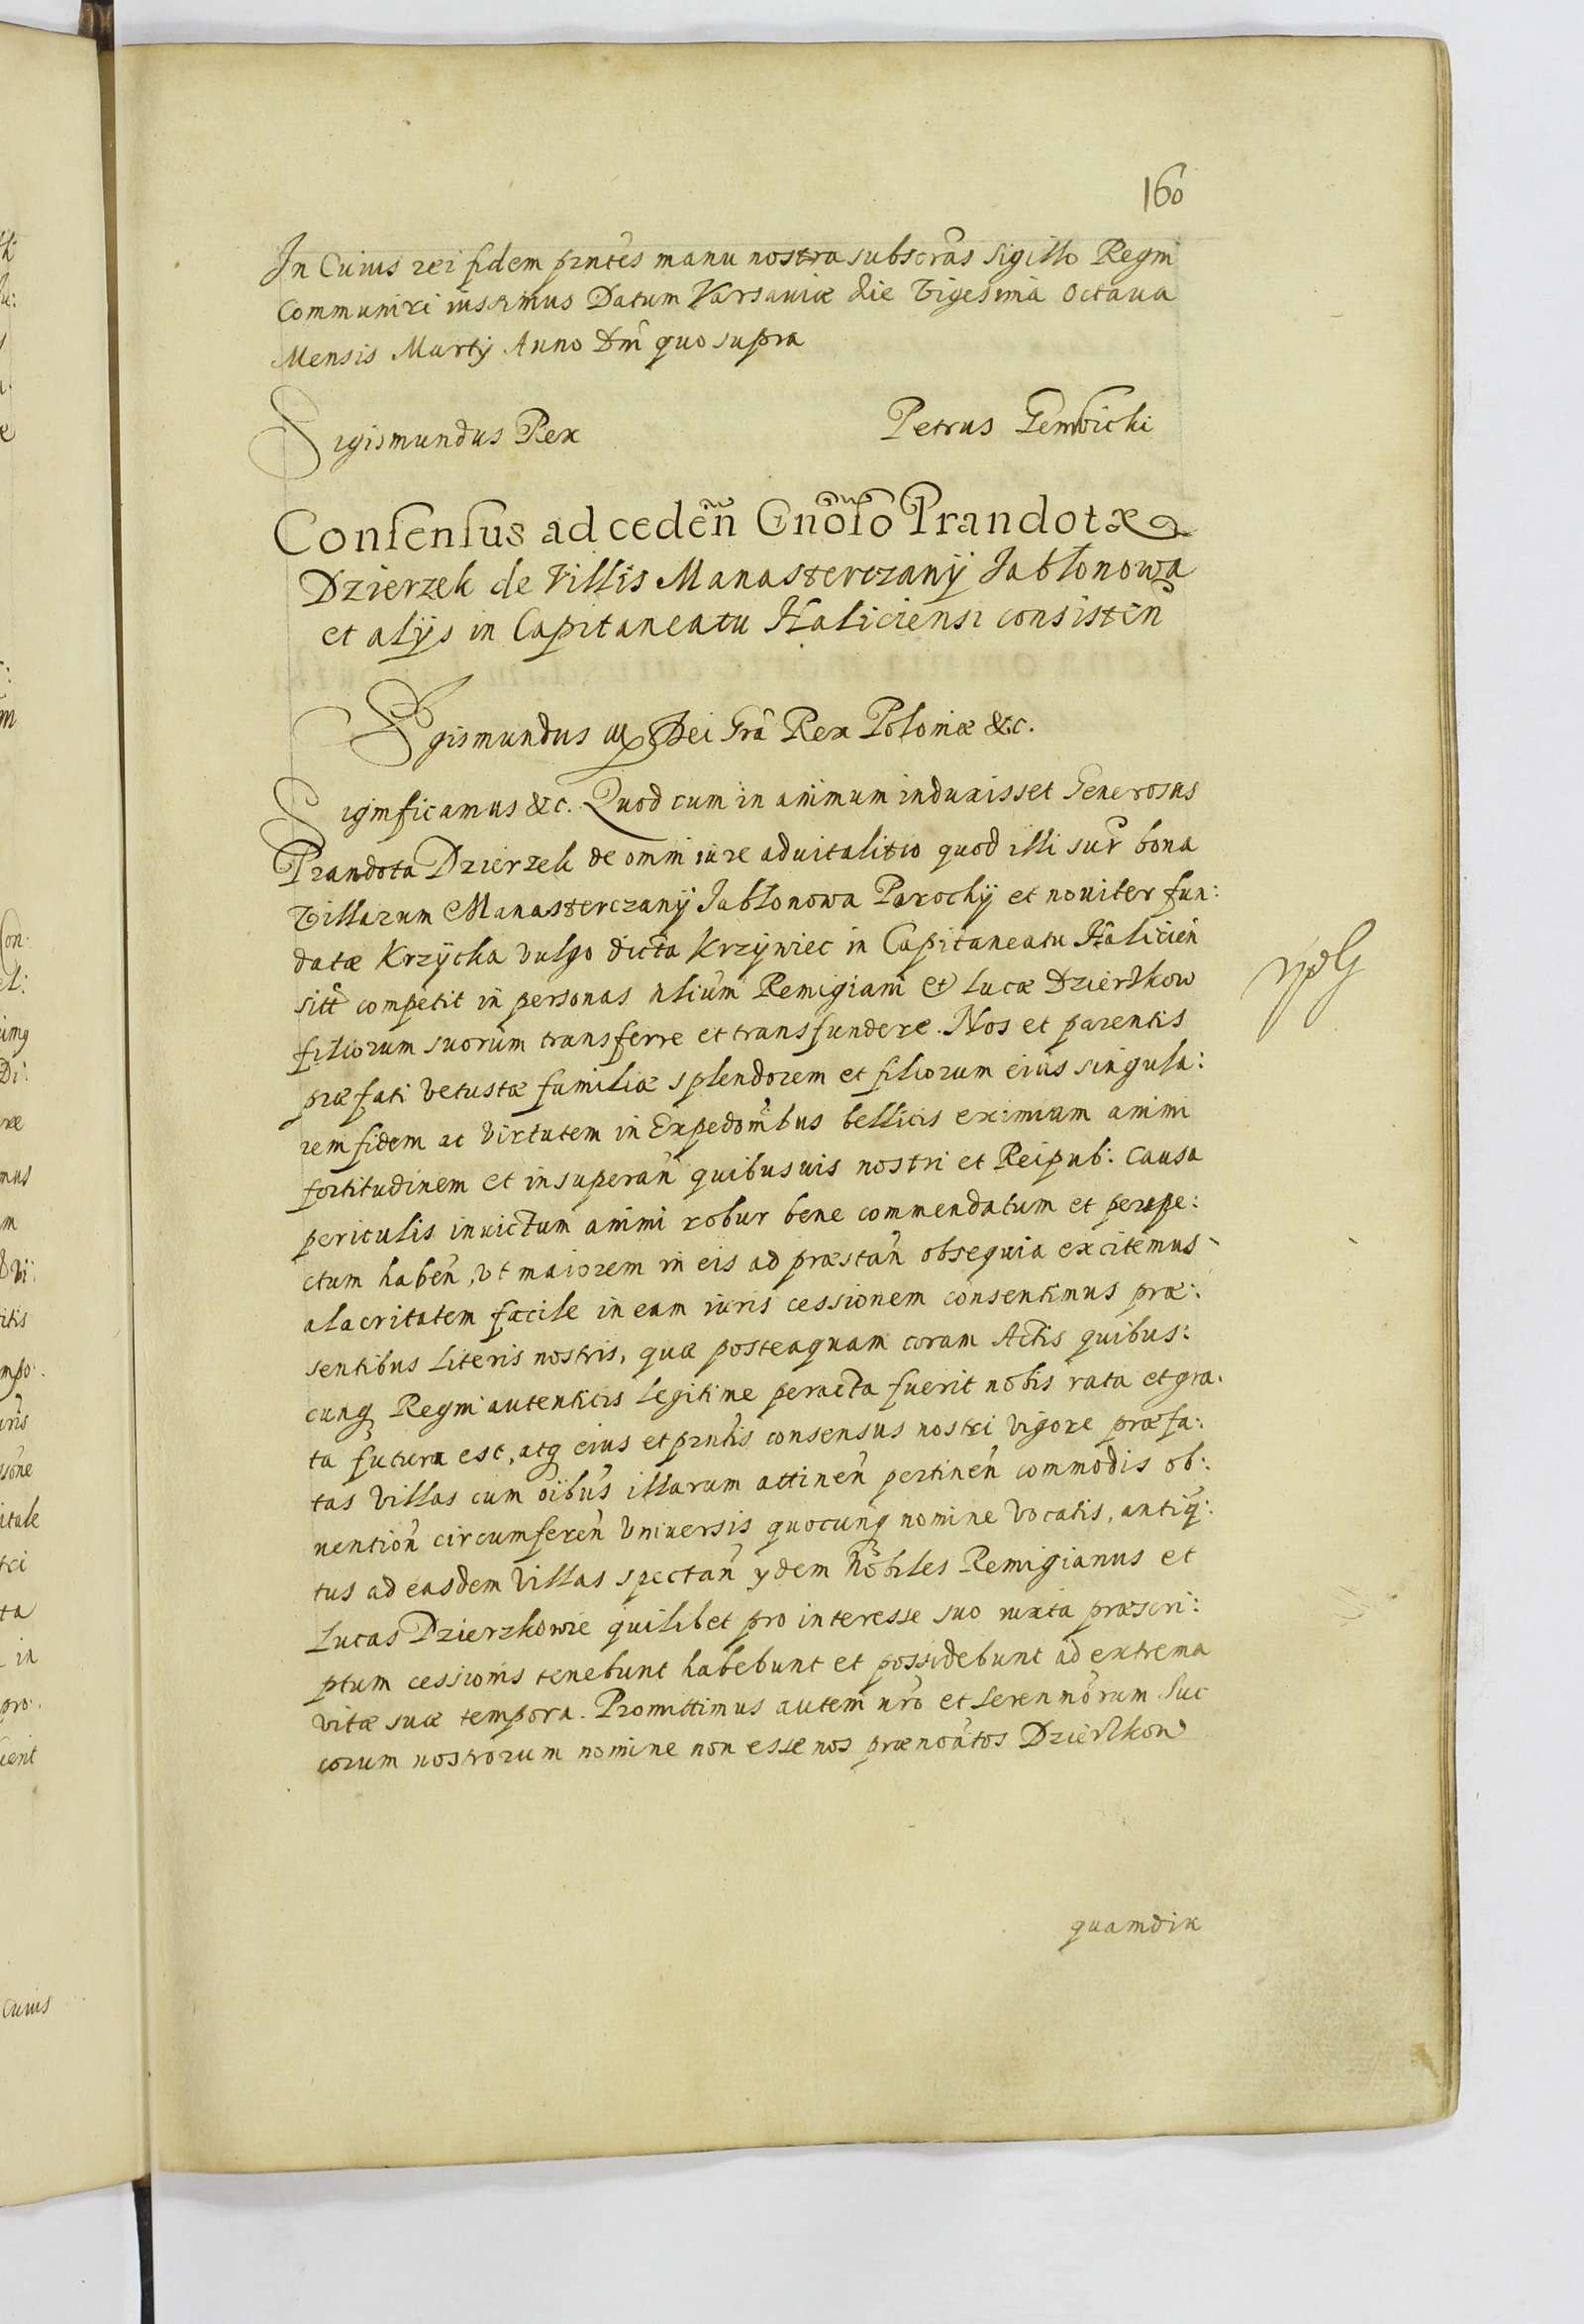 160
In Cuius rei fidem prntes manu nostra subscras Sigillo Regni
Communiri iussimus Datum Varsauiæ die Vigesima Octaua
Mensis Martij Anno Dni quo supra
Sigismundus Rex Petrus Gembicki
Consensus ad ceden̄ Gnoso Prandotæ
Dzierzek de Villis Manasterczanÿ Jabłonowa
et alÿs in Capitaneatu Haliciensi consisten̄
Sigismundus III Dei Gra Rex Poloniæ &c.
Significamus &c. Quod cum in animum induxisset Generosus
Prandota Dzierzek de omni iure aduitalitio quod illi supr bona
Villarum Manasterczanÿ Jabłonowa Parochÿ et nouiter fun:
datæ Krzÿcka vulgo dicta Krzÿwiec in Capitaneatu Halicien̄
sitt competit in personas nlium Remigiani et Lucæ Dzierzkow
filiorum suorum transferre et transfundere. Nos et parentis
præfati vetustæ familiæ splendorem et filiorum eius singula:
rem fidem ac virtutem in Expedombus bellicis eximiam animi
fortitudinem et insuperan̄ quibusuis nostri et Reipub: causa
periculis inuictum animi robur bene commendatum et perspe:
ctum haben̄, vt maiorem in eis ad præstan̄ obsequia excitemus
alacritatem facile in eam iuris cessionem consentimus præ:
sentibus literis nostris, quæ posteaquam coram Actis quibus:
cunq Regni autenticis legitime peracta fuerit nobis rata et gra:
ta futura est, atq eius et prntis consensus nostri vigore præfa:
tas villas cum oibus illarum attinen̄ pertinen̄ commodis ob:
uention̄ circumferen̄ vniuersis quocunq nomine vocatis, antiq:
tus ad easdem villas spectan̄ ydem Nobiles Remigianus et
Lucas Dzierzkowie quilibet pro interesse suo iuxta præscri:
ptum cessionis tenebunt habebunt et possidebunt ad extrema
vitæ suæ tempora. Promittimus autem nro et Serenmorum Suc
corum nostrorum nomine non esse nos prænoatos Dzierzkow
quamdiu